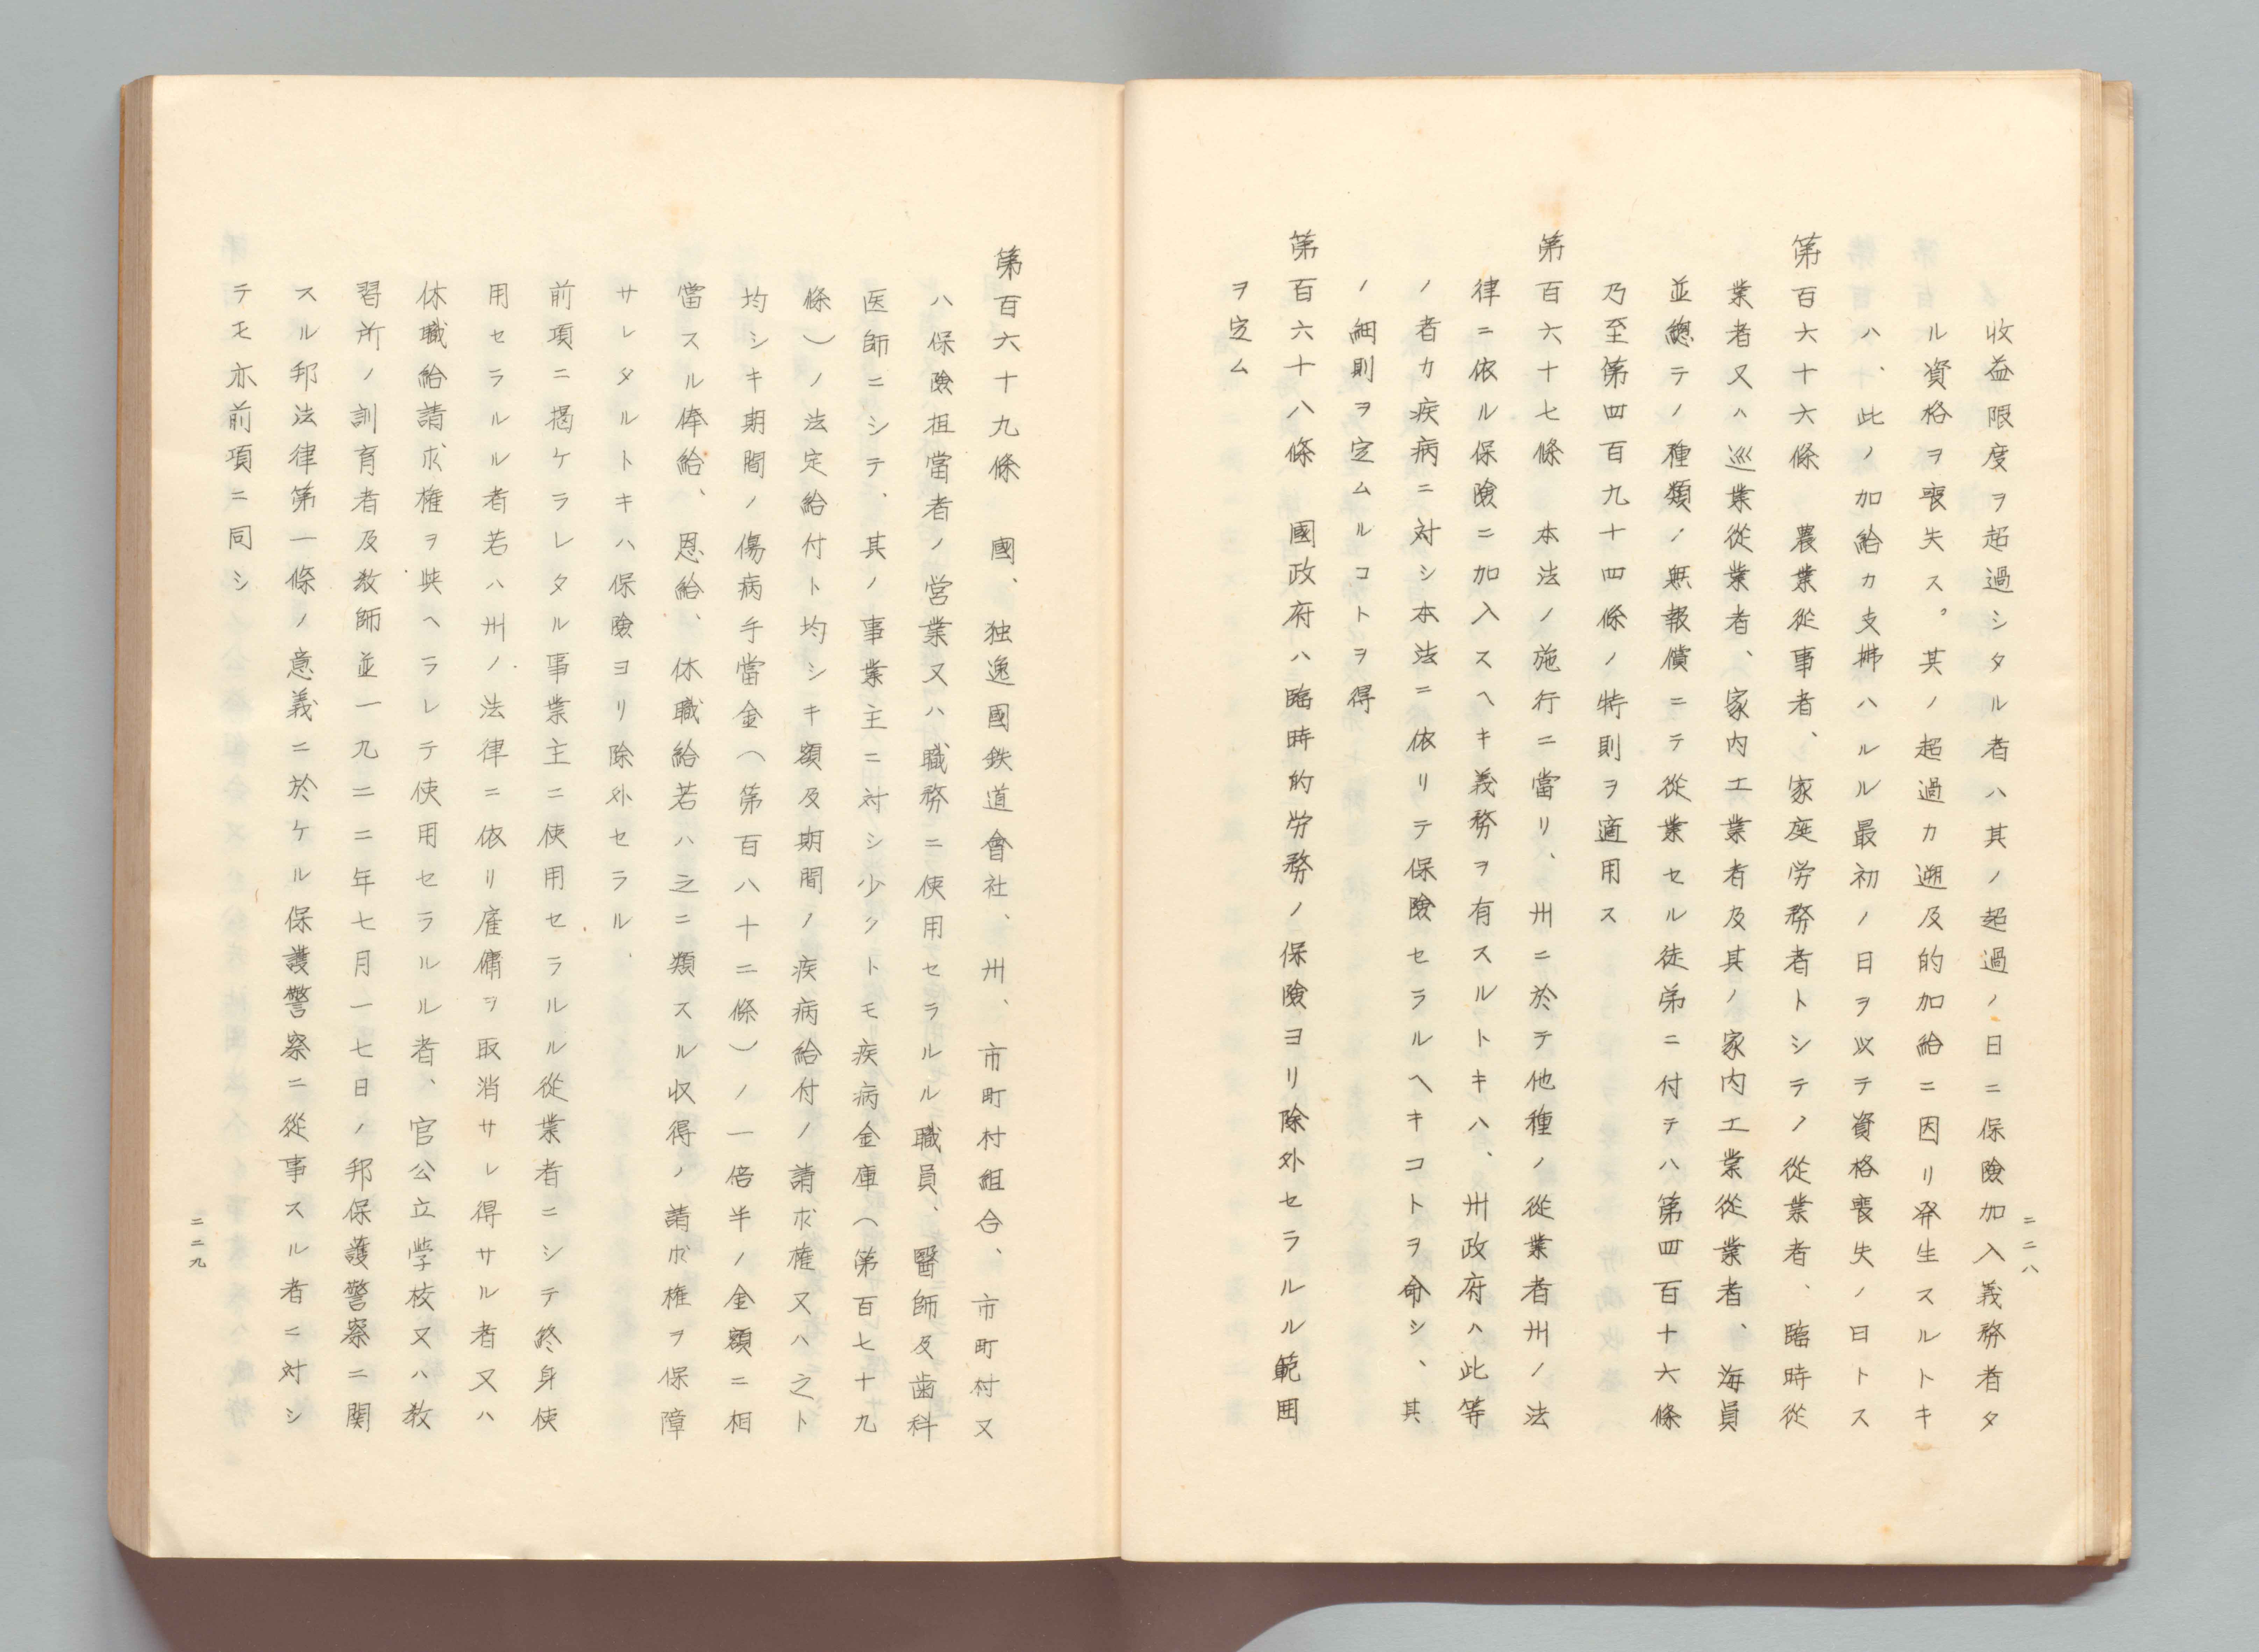 二二八
收益限度ヲ超過シタル者ハ其ノ超過ノ日ニ保險加入義務者タ
ル資格ヲ喪失ス。其ノ超過カ遡及的加給ニ因リ発生スルトキ
ハ、此ノ加給カ支拂ハルル最初ノ日ヲ以テ資格喪失ノ日トス
第百六十六條　農業從事者、家庭労務者トシテノ從業者、臨時從
業者又ハ巡業從業者、家内工業者及其ノ家内工業從業者、海員
並總テノ種類ノ無報償ニテ從業セル徒弟ニ付テハ第四百十六條
乃至第四百九十四條ノ特則ヲ適用ス
第百六十七條　本法ノ施行ニ當リ、州ニ於テ他種ノ從業者州ノ法
律ニ依ル保險ニ加入スヘキ義務ヲ有スルトキハ、州政府ハ此等
ノ者カ疾病ニ対シ本法ニ依リテ保險セラルヘキコトヲ命シ、其
ノ細則ヲ定ムルコトヲ得
第百六十八條　國政府ハ臨時的労務ノ保險ヨリ除外セラルル範囲
ヲ定ム
第百六十九條　國、独逸國鉄道會社、州、市町村組合、市町村又
ハ保險担當者ノ営業又ハ職務ニ使用セラルル職員、醫師及歯科
医師ニシテ、其ノ事業主ニ対シ少クトモ疾病金庫（第百七十九
條）ノ法定給付ト均シキ額及期間ノ疾病給付ノ請求権又ハ之ト
均シキ期間ノ傷病手當金（第百八十二條）ノ一倍半ノ金額ニ相
當スル俸給、恩給、休職給若ハ之ニ類スル収得ノ請求権ヲ保障
サレタルトキハ保險ヨリ除外セラル、
前項ニ揭ケラレタル事業主ニ使用セラルル從業者ニシテ終身使
用セラルル者若ハ州ノ法律ニ依リ雇傭ヲ取消サレ得サル者又ハ
休職給請求権ヲ與ヘラレテ使用セラルル者、官公立学校又ハ教
習所ノ訓育者及教師並一九二二年七月一七日ノ邦保護警察ニ関
スル邦法律第一條ノ意義ニ於ケル保護警察ニ從事スル者ニ対シ
テモ亦前項ニ同シ
二二九